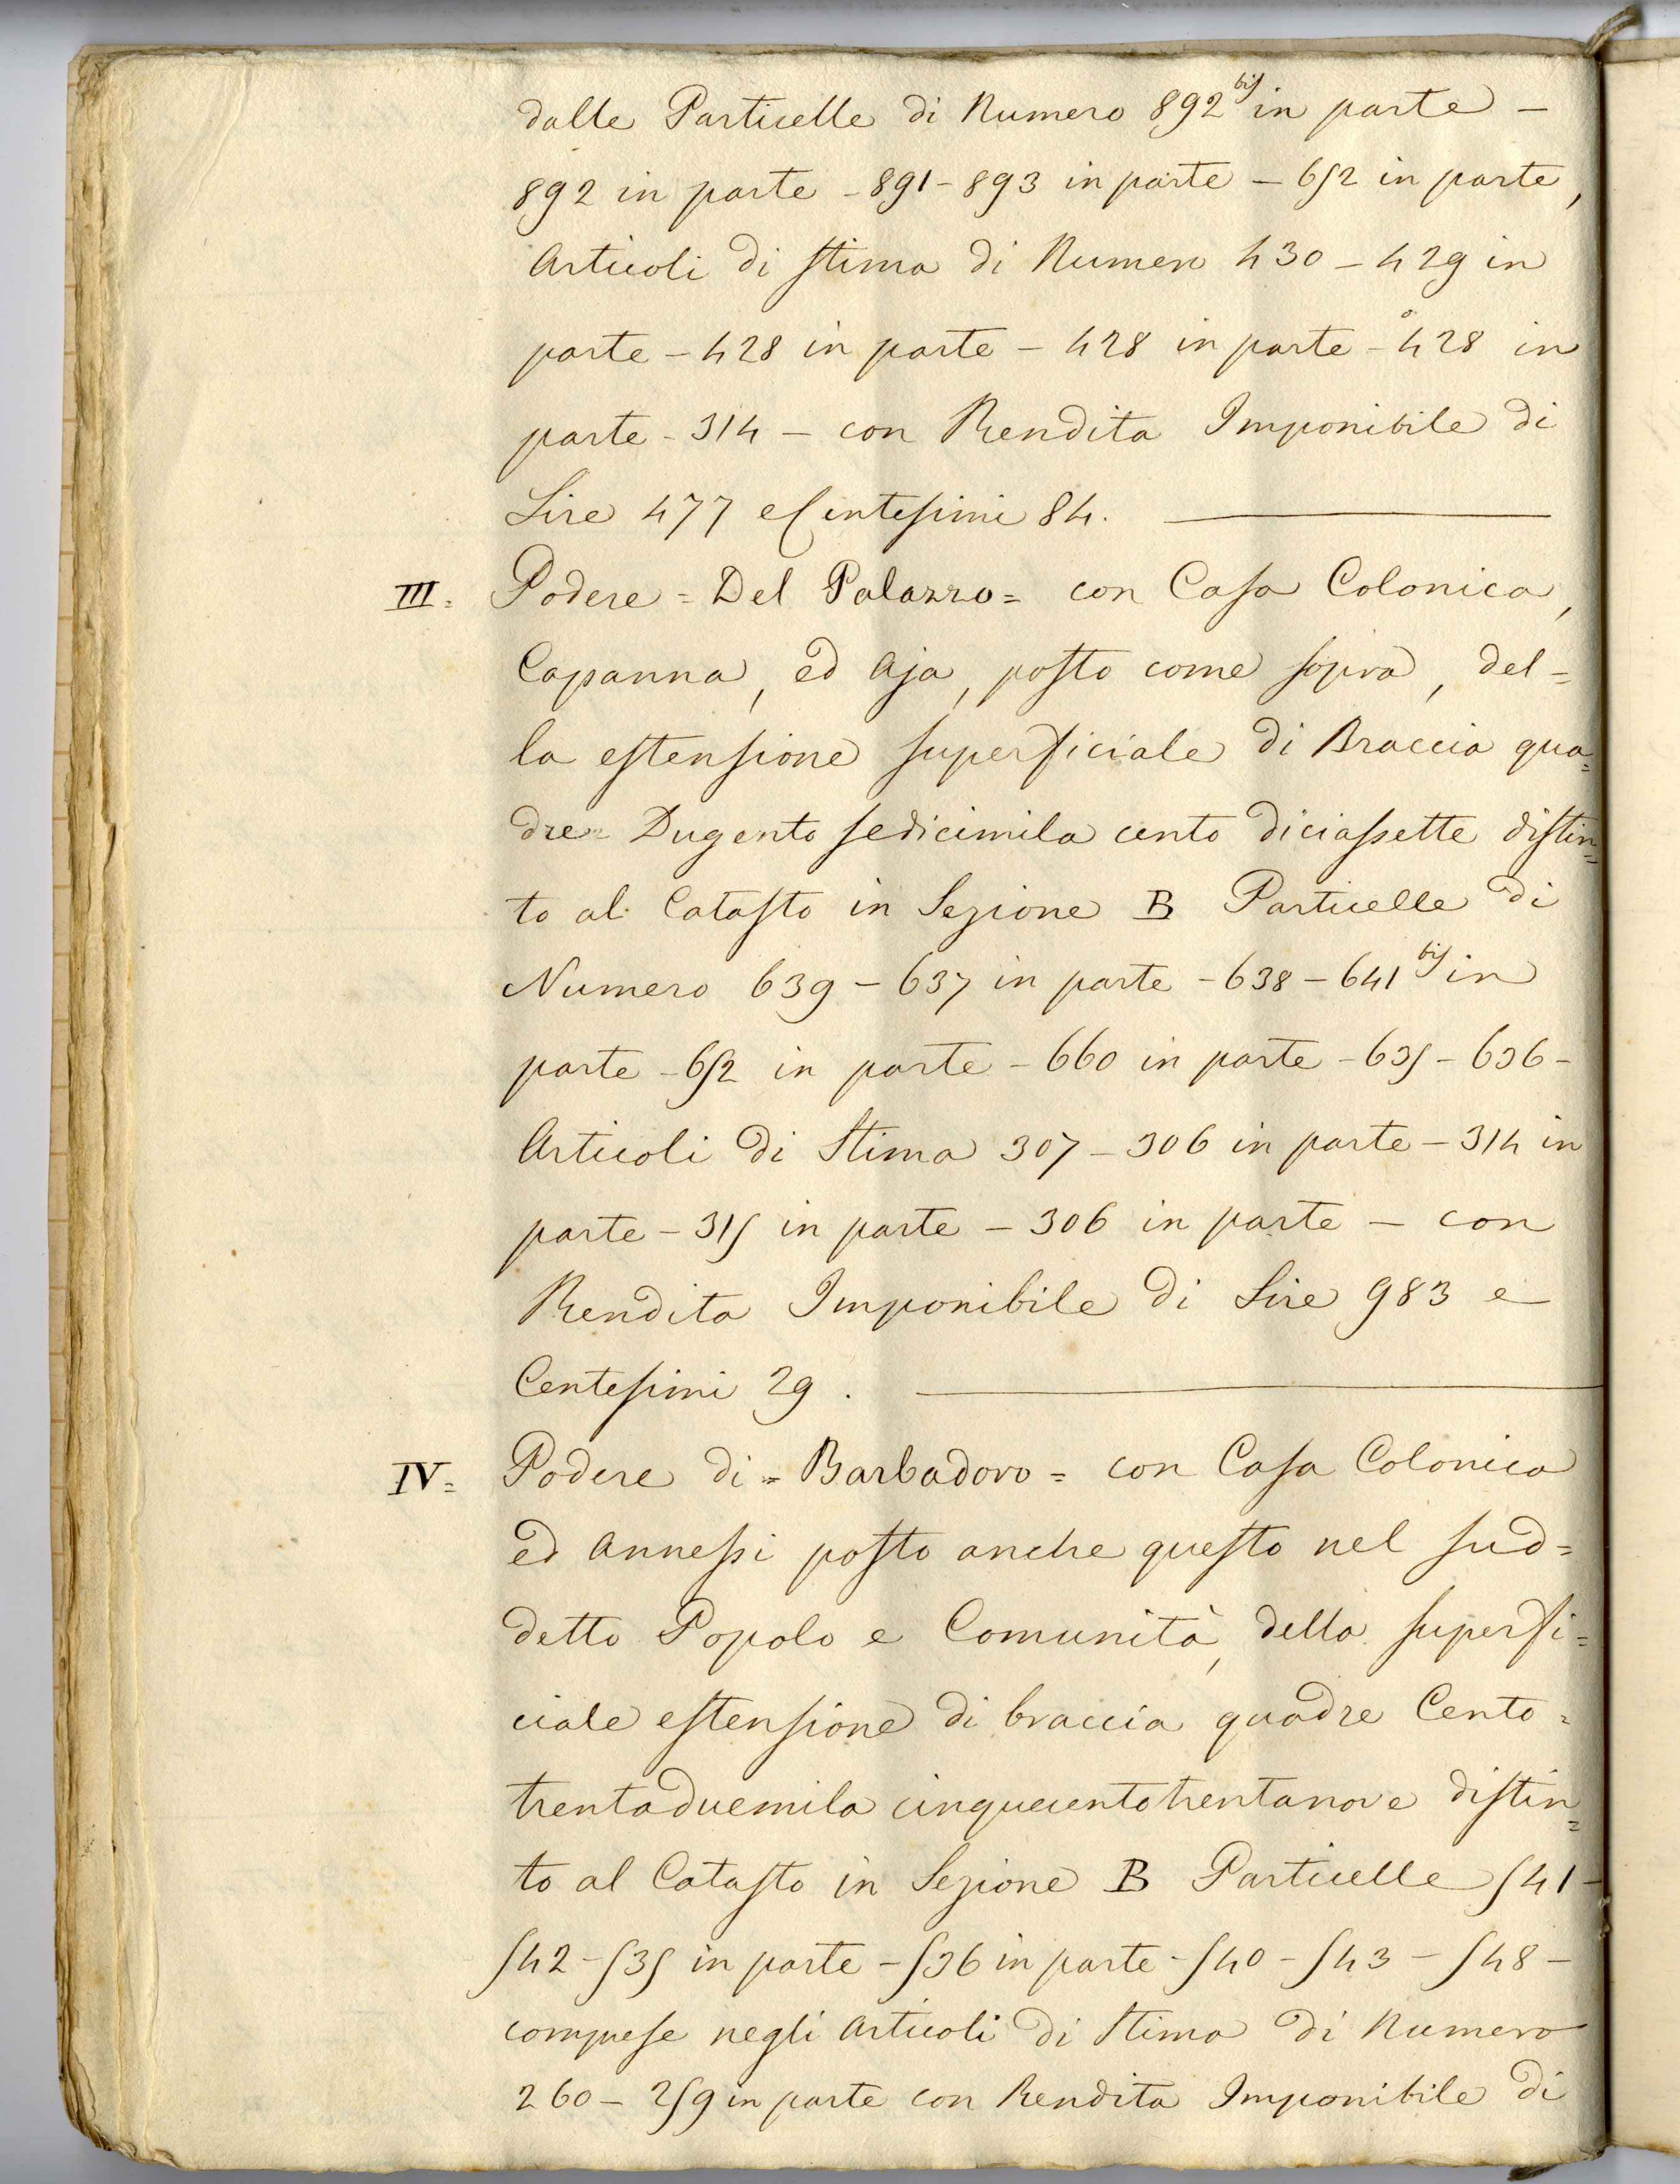 dalle Particelle di Numero 892 bis in parte –
892 in parte – 891 – 893 in parte – 652 in parte,
Articoli di Stima di Numero 430 – 429 in
parte – 428 in parte – 428 in parte – 428 in
parte – 314 – con Rendita Imponibile di
Lire 477 e Centesimi 84.
III = Podere = Del Palazzo = con Casa Colonica,
Capanna, ed Aja, posto come sopra, del=
la estensione superficiale di Braccia qua=
dre Dugento sedicimila cento diciassette distin=
to al Catasto in Sezione B Particelle di
Numero 639 – 637 in parte – 638 – 641 bis in
parte – 652 in parte – 660 in parte – 635 – 636 –
Articoli di Stima 307 – 306 in parte – 314 in
parte – 315 in parte – 306 in parte – con
Rendita Imponibile di Lire 983 e
Centesimi 29.
IV = Podere di = Barbadoro = con Casa Colonica
ed Annessi posto anche questo nel sud=
detto Popolo e Comunità, della superfi=
ciale estensione di braccia quadre Cento=
trentaduemila cinquecentotrentanove distin=
to al Catasto in Sezione B Particelle 541 –
542 – 535 in parte – 536 in parte – 540 – 543 – 548 –
comprese negli Articoli di Stima di Numero
260 – 259 in parte con Rendita Imponibile di